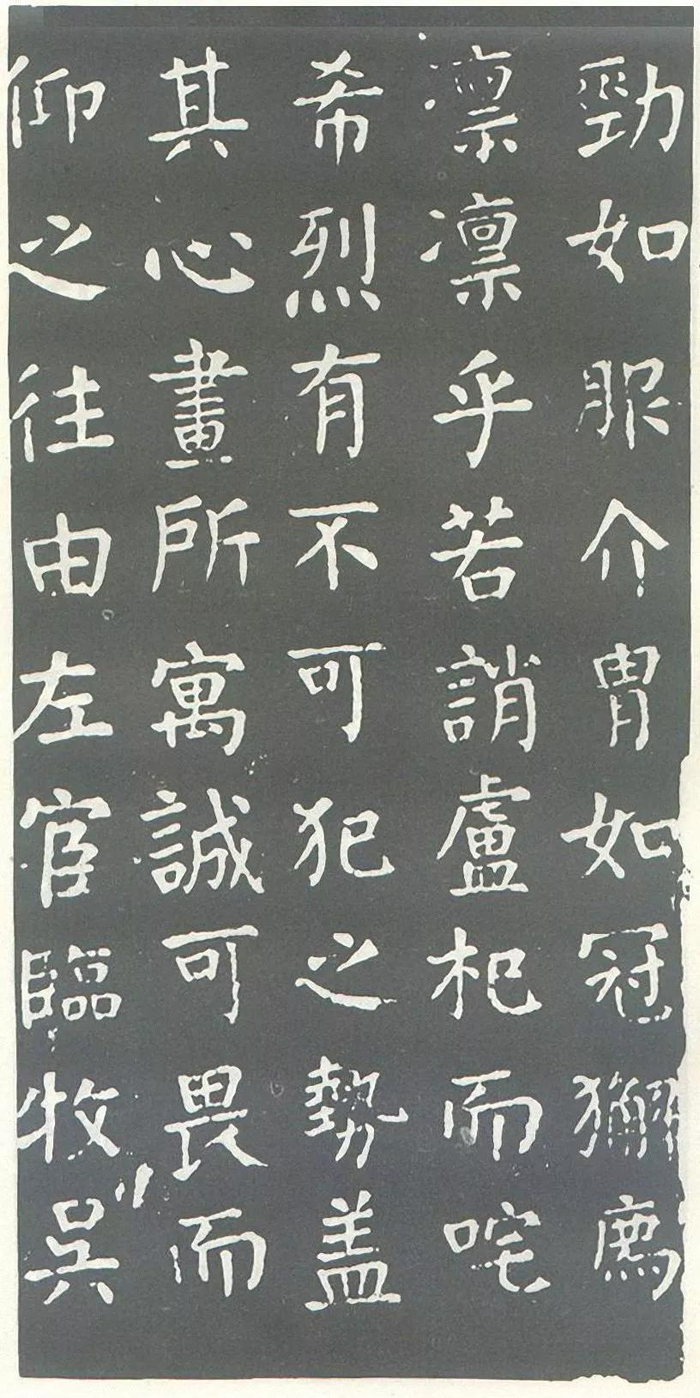 勁如服介冑如冠獬廌
凛凛乎若誚盧杞而咤
希烈有不可犯之勢盖
其心畫所寓誠可畏而
仰之往由左宦臨牧吴